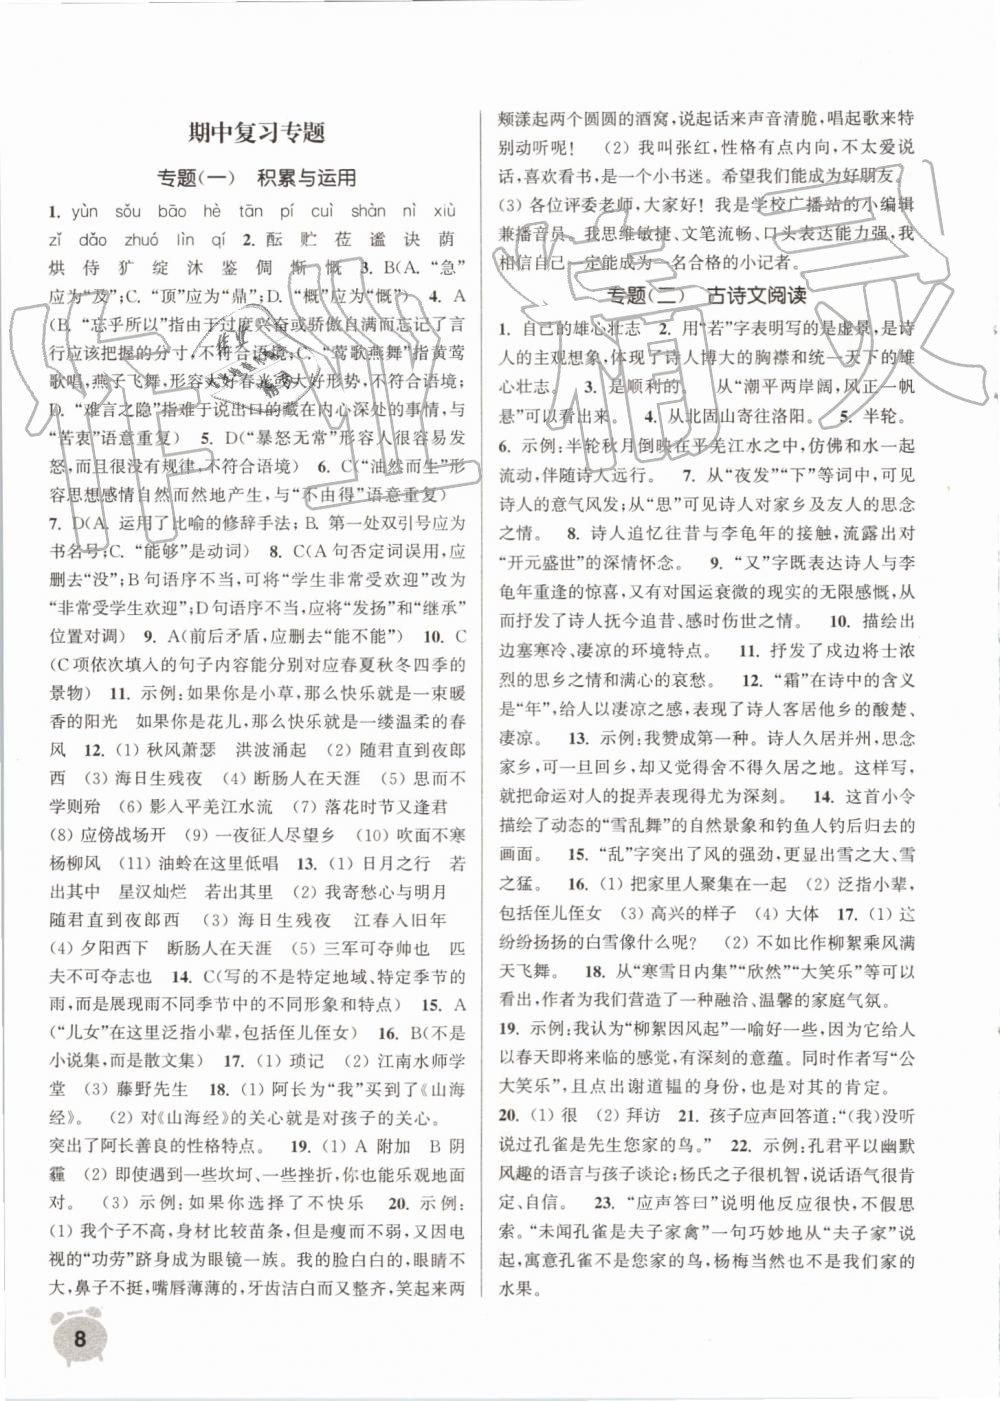 期中复习专题
专题(一) 积累与运用
1. yùn sǒu bāo hè tān pí cuì shàn nì xiù
zǐ dǎo zhuó lìn qí 2. 酝 贮 莅 谧 诀 荫
烘 侍 犷 绽 沐 鉴 倜 惭 慨 3. B(A. “急”
应为“及”;C. “顶”应为“鼎”;D. “概”应为“慨”) 4. A
(B. “忘乎所以”指由于过度兴奋或骄傲自满而忘记了言
行应该把握的分寸,不符合语境;C. “莺歌燕舞”指黄莺
歌唱,燕子飞舞,形容大好春光或大好形势,不符合语境;
D. “难言之隐”指难于说出口的藏在内心深处的事情,与
“苦衷”语意重复) 5. D(“暴怒无常”形容人很容易发
怒,而且很没有规律,不符合语境) 6. C(“油然而生”形
容思想感情自然而然地产生,与“不由得”语意重复)
7. D(A. 运用了比喻的修辞手法;B. 第一处双引号应为
书名号;C. “能够”是动词) 8. C(A句否定词误用,应
删去“没”;B句语序不当,应将“学生非常受欢迎”改为
“非常受学生欢迎”;D句语序不当,应将“发扬”和“继承”
位置对调) 9. A(前后矛盾,应删去“能不能”) 10. C
(C项依次填入的句子内容能分别对应春夏秋冬四季的
景物) 11. 示例:如果你是小草,那么快乐就是一束暖
香的阳光 如果你是花儿,那么快乐就是一缕温柔的春
风 12. (1) 秋风萧瑟 洪波涌起 (2) 随君直到夜郎
西 (3) 海日生残夜 (4) 断肠人在天涯 (5) 思而不
学则殆 (6) 影入平羌江水流 (7) 落花时节又逢君
(8) 应傍战场开 (9) 一夜征人尽望乡 (10) 吹面不寒
杨柳风 (11) 油蛉在这里低唱 13. (1) 日月之行 若
出其中 星汉灿烂 若出其里 (2) 我寄愁心与明月
随君直到夜郎西 (3) 海日生残夜 江春入旧年
(4) 夕阳西下 断肠人在天涯 (5) 三军可夺帅也 匹
夫不可夺志也 14. C(写的不是特定地域、特定季节的
雨,而是展现雨不同季节中的不同形象和特点) 15. A
(“儿女”在这里泛指小辈,包括侄儿侄女) 16. B(不是
小说集,而是散文集) 17. (1) 琐记 (2) 江南水师学
堂 (3) 藤野先生 18. (1) 阿长为“我”买到了《山海
经》。 (2) 对《山海经》的关心就是对孩子的关心。
突出了阿长善良的性格特点。 19. (1) A 附加 B 阴
霾 (2) 即使遇到一些坎坷、一些挫折,你也能乐观地面
对。 (3) 示例:如果你选择了不快乐 20. 示例:
(1) 我个子不高,身材比较苗条,但是瘦而不弱,又因电
视的“功劳”跻身成为眼镜一族。我的脸白白的,眼睛不
大,鼻子不挺,嘴唇薄薄的,牙齿洁白而又整齐,笑起来两
颊漾起两个圆圆的酒窝,说起话来声音清脆,唱起歌来特
别动听呢! (2) 我叫张红,性格有点内向,不太喜欢说
话,喜欢看书,是一个小书迷。希望我们能成为好朋友。
(3) 各位评委老师,大家好!我是学校广播站的小编辑
兼播音员。我思维敏捷、文笔流畅、口头表达能力强,我
相信自己一定能成为一名合格的小记者。
专题(二) 古诗文阅读
1. 自己的雄心壮志 2. 用“若”字表明写的是虚景,是诗
人的主观想象,体现了诗人博大的胸襟和统一天下的雄
心壮志。 3. 是顺利的。 从“潮平两岸阔,风正一帆
悬”可以看出来。 4. 从北固山寄往洛阳。 5. 半轮。
6. 示例:半轮秋月倒映在平羌江水之中,仿佛和水一起
流动,伴随诗人远行。 7. 从“夜发”“下”等词中,可以看
出诗人的意气风发;从“思”可见诗人对家乡及友人的思念
之情。 8. 诗人追忆往昔与李龟年的接触,流露出对
“开元盛世”的深情怀念。 9. “又”字既表达诗人与李
龟年重逢的惊喜,又有对国运衰微的现实的无限感慨,从
而抒发了诗人抚今追昔、感时伤世之情。 10. 描绘出
边塞寒冷、凄凉的环境特点。 11. 抒发了戍边将士浓
烈的思乡之情和满心的哀愁。 12. “霜”在诗中的含义
是“年”,给人以凄凉之感,表现了诗人客居他乡的酸楚、
凄凉。 13. 示例:我赞成第一种。诗人久居并州,思念
家乡,可又从未想过并州亦不能久居之地。这样写,
就把命运对人的捉弄表现得尤为深刻。 14. 这首小令
描绘了动态的“雪乱舞”的自然景象和钓鱼人钓后归去的
画面。 15. “乱”字突出了风的强劲,更出雪之大、雪
之猛。 16. (1) 把家里人聚集在一起 (2) 泛指小辈,
包括侄儿侄女 (3) 高兴的样子 (4) 大体 17. (1) 这
纷纷扬扬的白雪像什么呢? (2) 不如比作柳絮乘风满
天飞舞。 18. 从“寒雪日内集”“欣然”“大笑乐”等可以
看出,作者为我们营造了一种融洽、温馨的家庭气氛。
19. 示例:我认为“柳絮因风起”一喻好一些,因为它给人
以春天即将来临的感觉,有深刻的意蕴。同时作者写“公
大笑乐”,且点出谢道韫的身份,也是对她才华的肯定。
20. (1) 很 (2) 拜访 21. 孩子应声回答道:“(我)没听
说过孔雀是先生您家的鸟。” 22. 示例:孔君平以幽默
风趣的语言与孩子谈论;杨氏之子很机智,说话语气很肯
定、自信。 23. “应声答曰”说明他反应很快,不假思
索。“未闻孔雀是夫子家禽”一句巧妙地从“夫子家”说
起,寓意孔雀不是夫子家的鸟,杨梅当然也不是他们家的
水果。
8
作业精灵